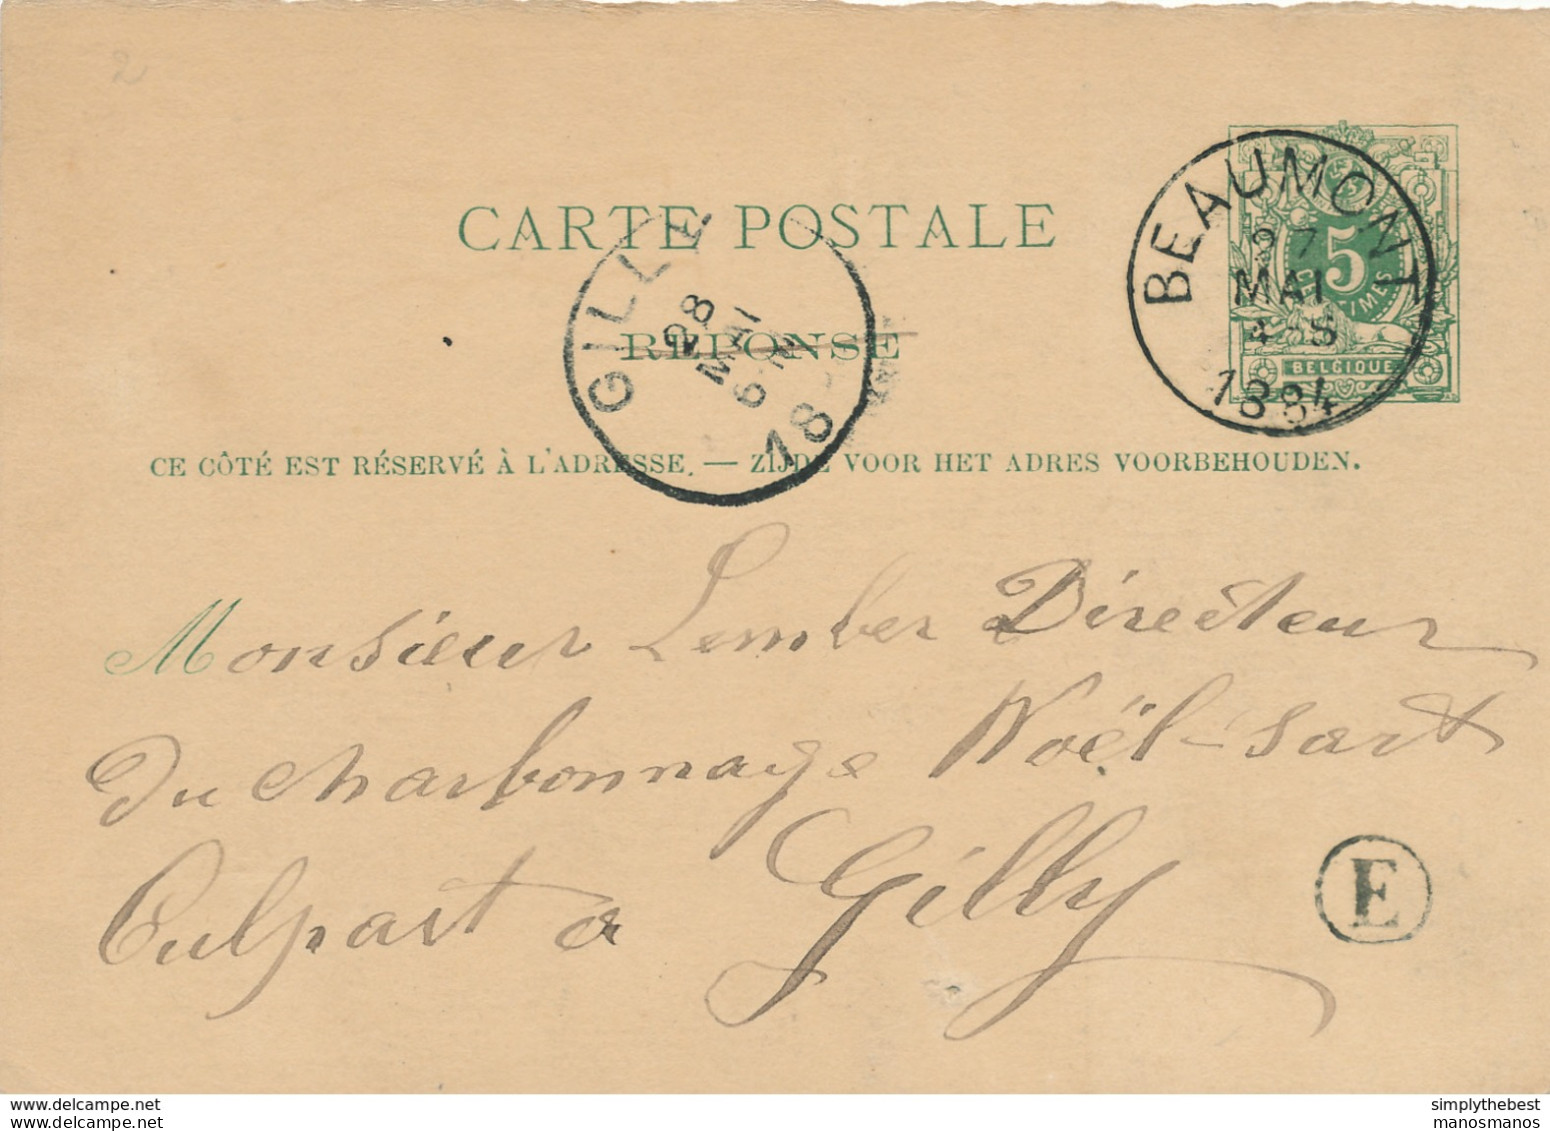 2
CARTE POSTALE
RÉPONSE
BEAUMONT
27
MAI
4-S
1884
5
CENTIMES
BELGIQUE
GILLY
28
MAI
6-M
18
CE CÔTÉ EST RÉSERVÉ À L'ADRESSE. — ZIJDE VOOR HET ADRES VOORBEHOUDEN.
Monsieur Lember Directeur
Du charbonnage Noël-Sart
Culpart à Gilly
E
delcampe.net
simplythebest
manosmanos